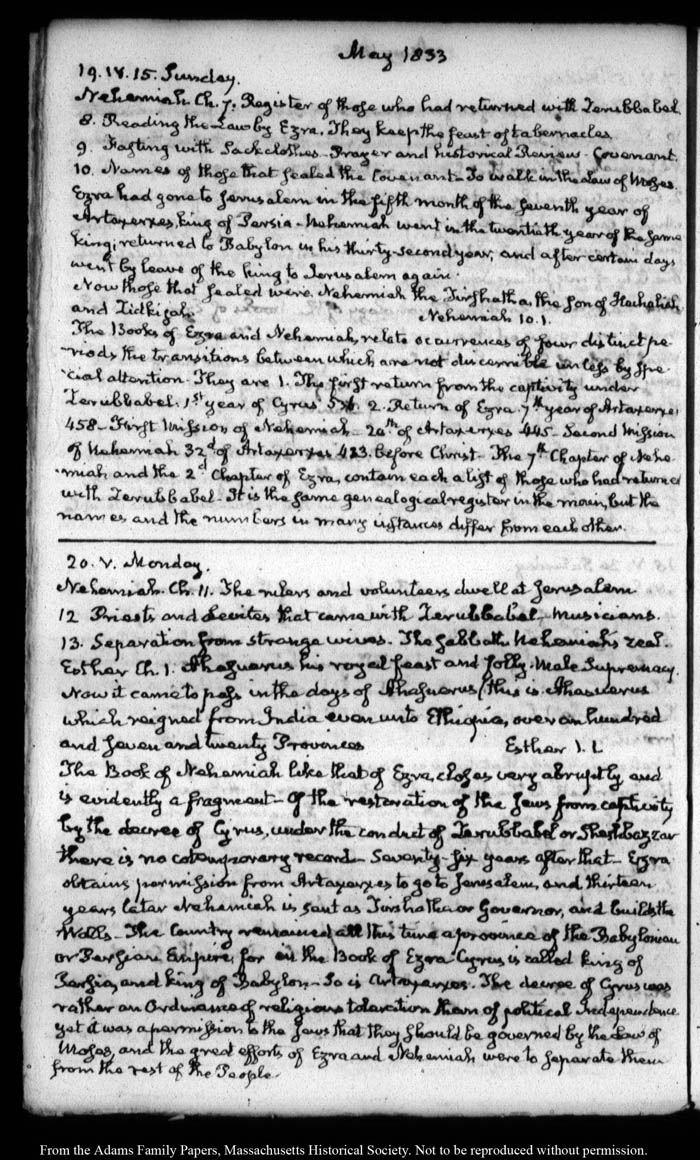 May 1833
19. V. 15. Sunday.
Nehemiah Ch. 7. Register of those who had returned with Zerubbabel
8. Reading the Law by Ezra. They keep the feast of tabernacles
9. Fasting with Sackclothes – Prayer and historical Review – Covenant.
10. Names of those that sealed the Covenant – To walk in the Law of Moses.
Ezra had gone to Jerusalem in the fifth month of the seventh year of
Artaxerxes, king of Persia – Nehemiah went in the twentieth year of the same
king; returned to Babylon in his thirty-second year, and after certain days
went by leave of the king to Jerusalem again.
Now those that sealed were, Nehemiah the Tirshatha, the son of Hachaliah,
and Zidkijah. Nehemiah 10.1.
The Books of Ezra and Nehemiah, relate occurrences of four distinct pe-
-riods the transitions between which are not discernible unless by spe-
-cial attention. They are 1. The first return from the captivity under
Zerubbabel. 1st year of Cyrus 536. 2. Return of Ezra 7th year of Artaxerxes
458 – First Mission of Nehemiah – 20th of Artaxerxes 445 – Second Mission
of Nehemiah 32d of Artaxerxes 433. before Christ – The 7th Chapter of Nehe
-miah and the 2d Chapter of Ezra, contain each a list of those who had returned
with Zerubbabel – It is the same genealogical register in the main, but the
names and the numbers in many instances differ from each other.
20. V. Monday.
Nehemiah. Ch. 11. The rulers and volunteers dwell at Jerusalem
12 Priests and Levites that came with Zerubbabel – Musicians.
13. Separation from strange wives. The Sabbath Nehemiah's zeal.
Esther Ch. 1. Ahasuerus his royal feast and folly. Male Supremacy.
Now it came to pass in the days of Ahasuerus (this is Ahasuerus
which reigned from India even unto Ethiopia, over an hundred
and seven and twenty Provinces Esther 1. 1.
The Book of Nehemiah like that of Ezra, closes very abruptly and
is evidently a fragment – Of the restoration of the Jews from captivity
by the decree of Cyrus, under the conduct of Zerubbabel or Sheshbazzar
there is no cotemporary record – Seventy-six years after that – Ezra
obtains permission from Artaxerxes to go to Jerusalem, and thirteen
years later Nehemiah is sent as Tirshatha or Governor, and builds the
Walls – The Country remained all this time a province of the Babylonian
or Persian Empire, for in the Book of Ezra Cyrus is called king of
Persia, and king of Babylon – So is Artaxerxes. The decree of Cyrus was
rather an Ordinance of religious toleration than of political Independence
yet it was a permission to the Jews that they should be governed by the Law of
Moses, and the great efforts of Ezra and Nehemiah were to separate them
from the rest of the People.
From the Adams Family Papers, Massachusetts Historical Society. Not to be reproduced without permission.